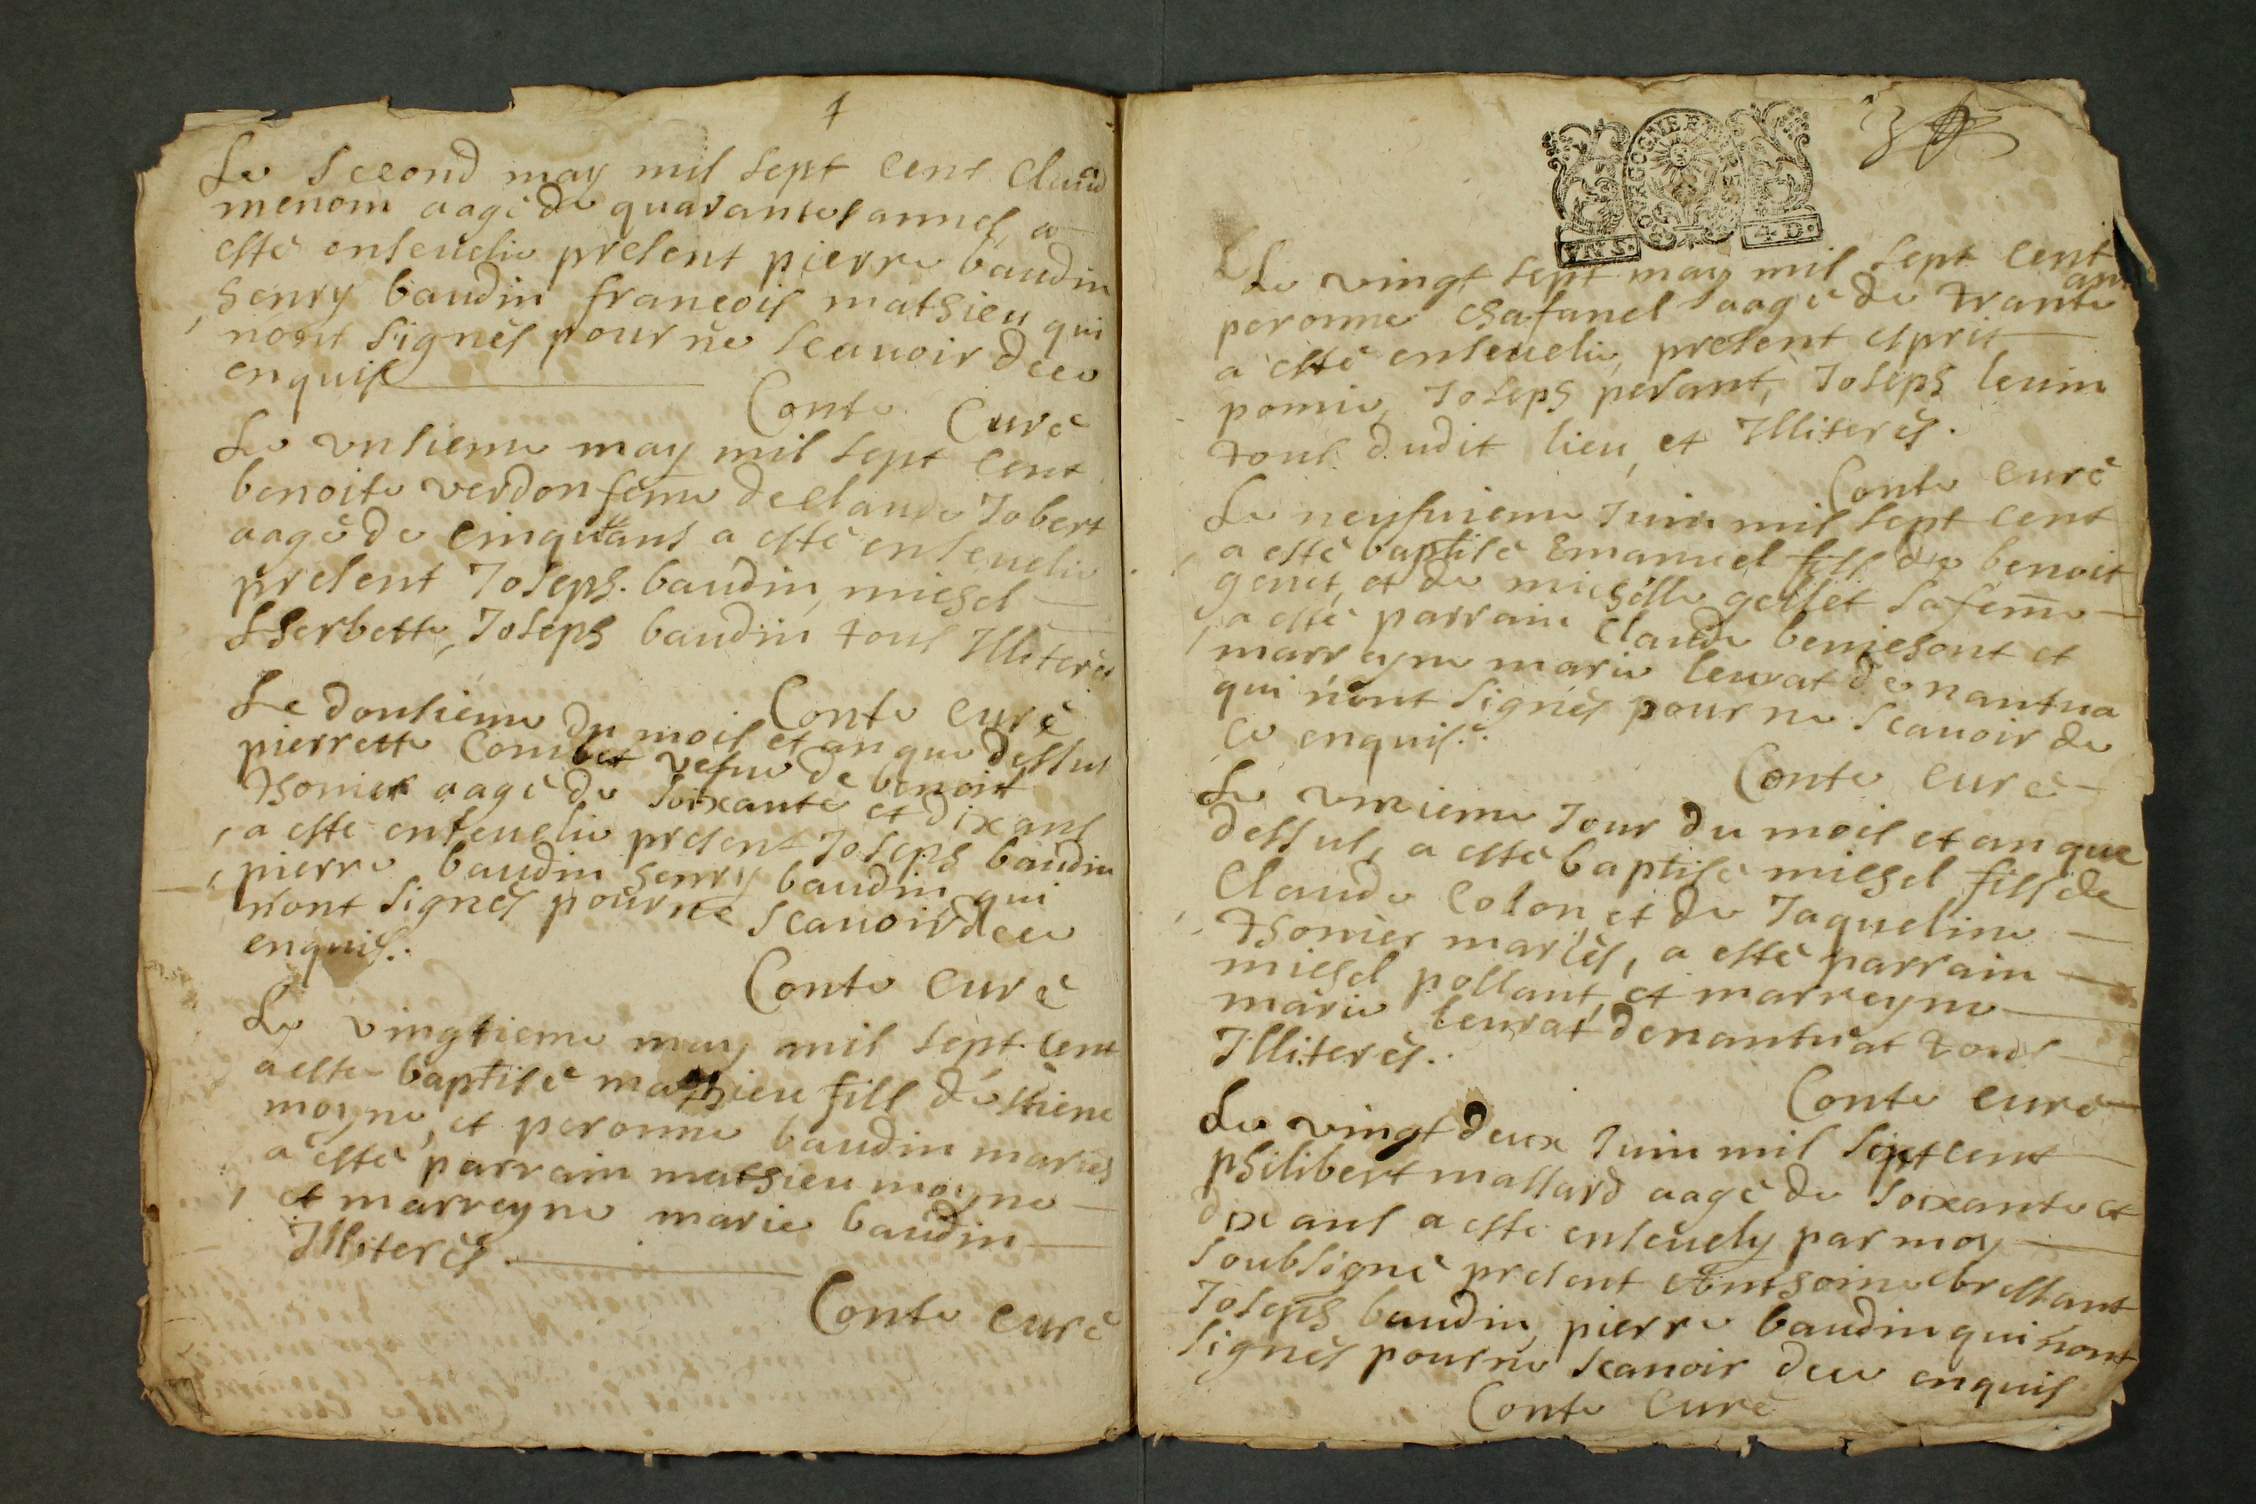 4
Le second may mil sept cent Claud
menom aagé de quarantes années, a
esté ensevelie present pierre baudin
henry baudin francois mathieu qui
nont signés pour ne scauoir dece
enquis
Conte Curé
Le unsieme may mil sept cent
benoite verdon feme de Claude Jobert
aagé de cinquātans a esté enseuelie
present Joseph. baudin, michel
Lherbette, Joseph baudin tous Illiterés
Conte curé
Le dousieme du mois et an que dessus
pierrette Combet vefue de benoit
thonier aagé de soixante et dix ans
a esté enseuelie present Joseph baudin
pierre baudin henry baudin qui
n'ont signés pour ne scauoir dece
enquis.
Conte curé
Le vingtieme may mil sept. cent
a este baptisé mathieu fils d'estiene
moyne, et peronne baudin mariés
a esté parrain mathieu moyne
et marreyne marie baudin
Illiterés.
Conte curé
3
BOURGOGNE ET BRESSE
VN S. 4 D.
Le vingt sept may mil sept cent
peronne chafanel aagé de trante ans
a esté enseuelie, present esprit
pomie, Joseph perant, Joseph leuin
tous dudit lieu, et Illiterés.
Conte curé
Le neufuieme Juin mil sept cent
a esté baptisé Emanuel fils de benoit
genet, et de michelle gellet sa feme
a esté parrain Claude benichont et
marreyne marie leurat de nantua
qui n'ont signés pour ne scauoir de
ce enquis.
Conte curé
Le unzieme Jour du mois et an que
dessus, a esté baptisé michel fils de
Claude Colon, et de Jaqueline
thonier mariés, a esté parrain
michel pollant, et marreyne
marie leurat denantuat tous
Illiterés.
Conte curé
Le vingt deux Juin mil sept cent
philibert mallard aagé de soixante et
dix ans a esté enseuely par moy
soubsigné present Anthoine brellant
Joseph baudin, pierre baudin qui nont
signés pour ne scauoir dece enquis
Conte Curé